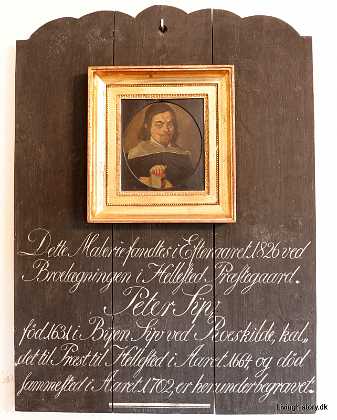 Dette Malerie fandtes i Efteraaret 1826 ved
Broelægningen i Hellested Præstegaard.
Peter Syv,
föd 1631 i Byen Syv ved Roeskilde, kal„
det til Præst til Hellested i Aaret 1664, og död
sammested i Aaret 1702, er herunder begravet.